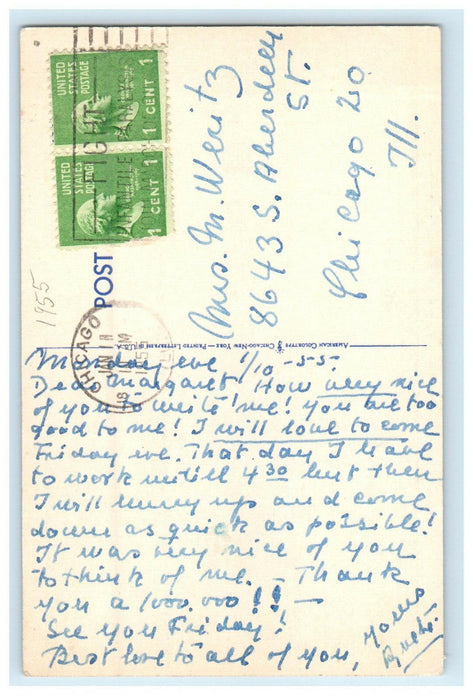 UNITED
STATES
POSTAGE
1 CENT 1
UNITED
STATES
POSTAGE
1 CENT 1
FIGHT
INFANTILE
CHICAGO
JAN 11
1955
1955
POST
Mrs. M. Weritz
8643 S. Aberdeen
St.
Chicago 20
Ill.
Monday eve 1/10-55-
Dear Margaret How very nice
of you to write me! You are too
good to me! I will love to come
Friday eve. That day I have
to work untill 4 30 but then
I will hurry up and come
down as quick as possible!
It was very nice of you
to think of me. - Thank
you a 1000.000!! -
See you Friday!
Best love to all of you,
Yours